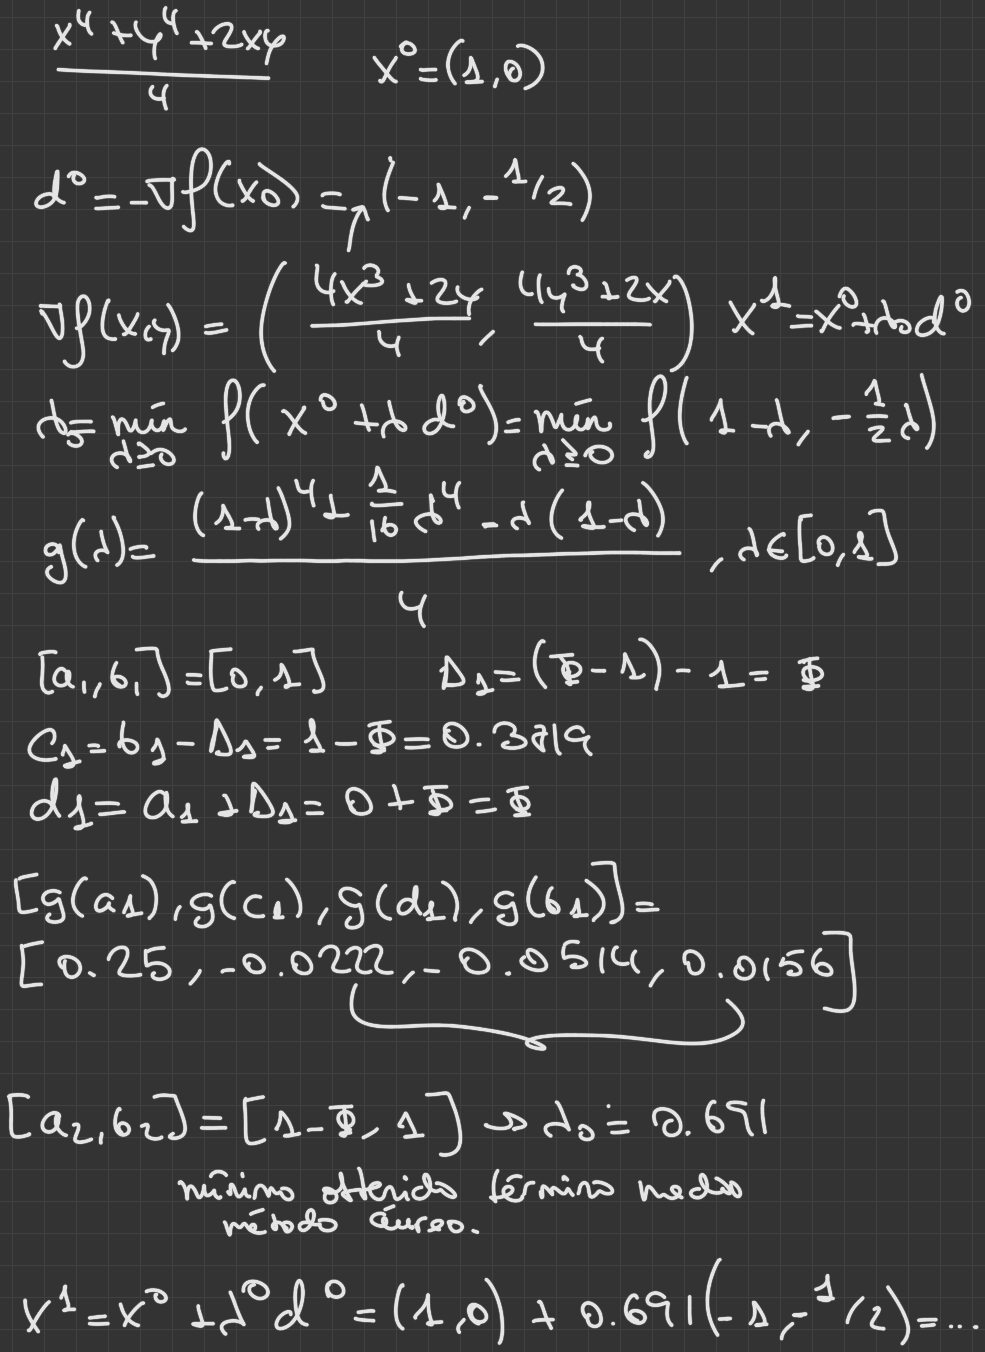 (x⁴+y⁴+2xy)/4    x⁰=(1,0)
d⁰=-∇f(x0)=(-1,-1/2)
∇f(x,y) = ((4x³+2y)/4, (4y³+2x)/4)  x¹=x⁰+λ₀d⁰
λ₀= mín λ≥0 f(x⁰+λd⁰)= mín λ≥0 f(1-λ, -1/2 λ)
g(λ)= ((1-λ)⁴+ 1/16 λ⁴ -λ(1-λ))/4 , λ∈[0,1]
[a₁,b₁]=[0,1]    Δ₁=(Φ-1)-1= Φ
C₁=b₁-Δ₁= 1-Φ=0.3819
d₁= a₁+Δ₁= 0+Φ=Φ
[g(a₁),g(c₁),g(d₁),g(b₁)]=
[0.25,-0.0222,-0.0514,0.0156]
[a₂,b₂]=[1-Φ,1] → λ₀ = 0.691
mínimo obtenido término medio
método áureo.
x¹=x⁰+λ⁰d⁰=(1,0) + 0.691(-1,-1/2)=...